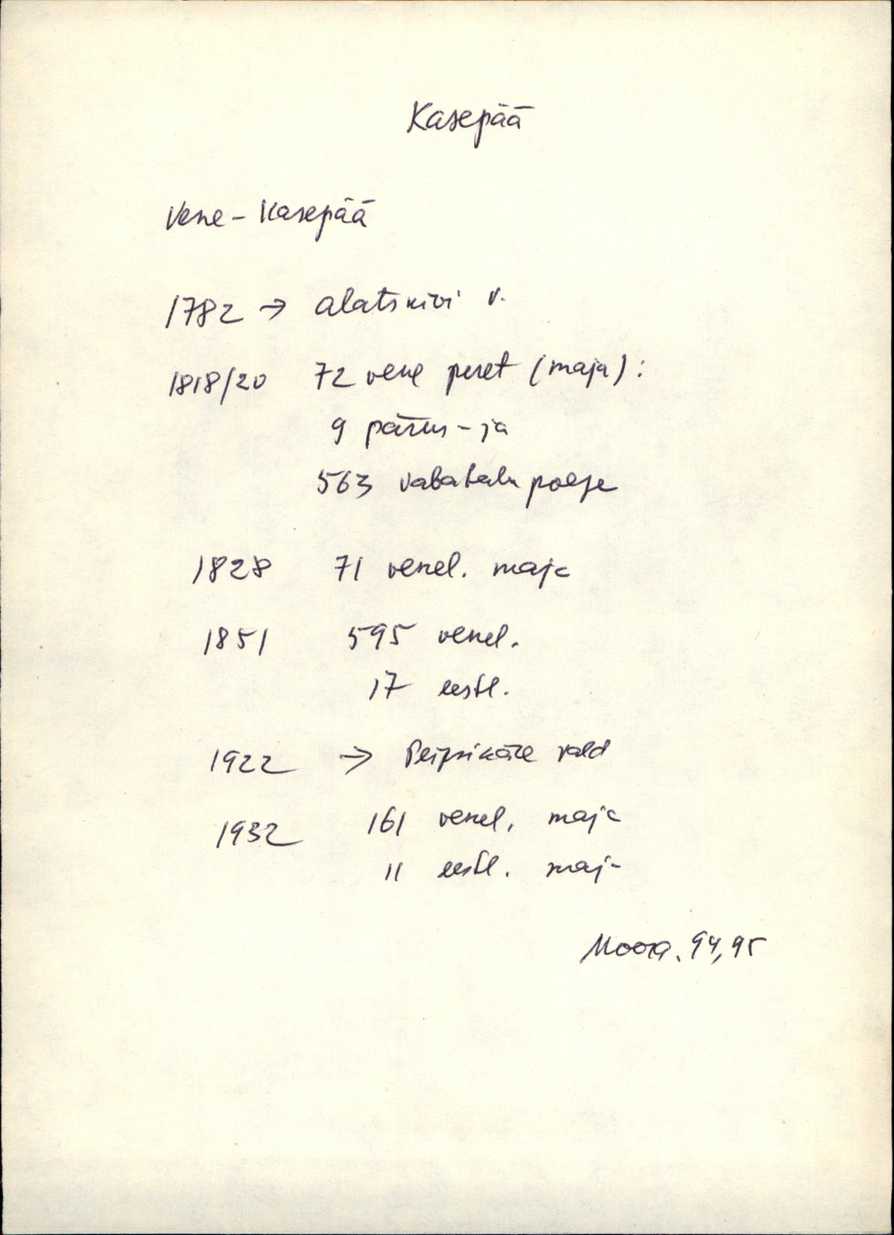 Kasepää
Vene-Kasepää
1782 → Alatskivi v.
1818/20 72 vene peret (maja):
9 päris- ja
563 vabatalupoega
1828 71 venel. maja
1851 595 venel.
17 eestl.
1922 → Peipsiääre vald
1932 161 venel. maja
11 eestl. maja
Moora. 94, 95